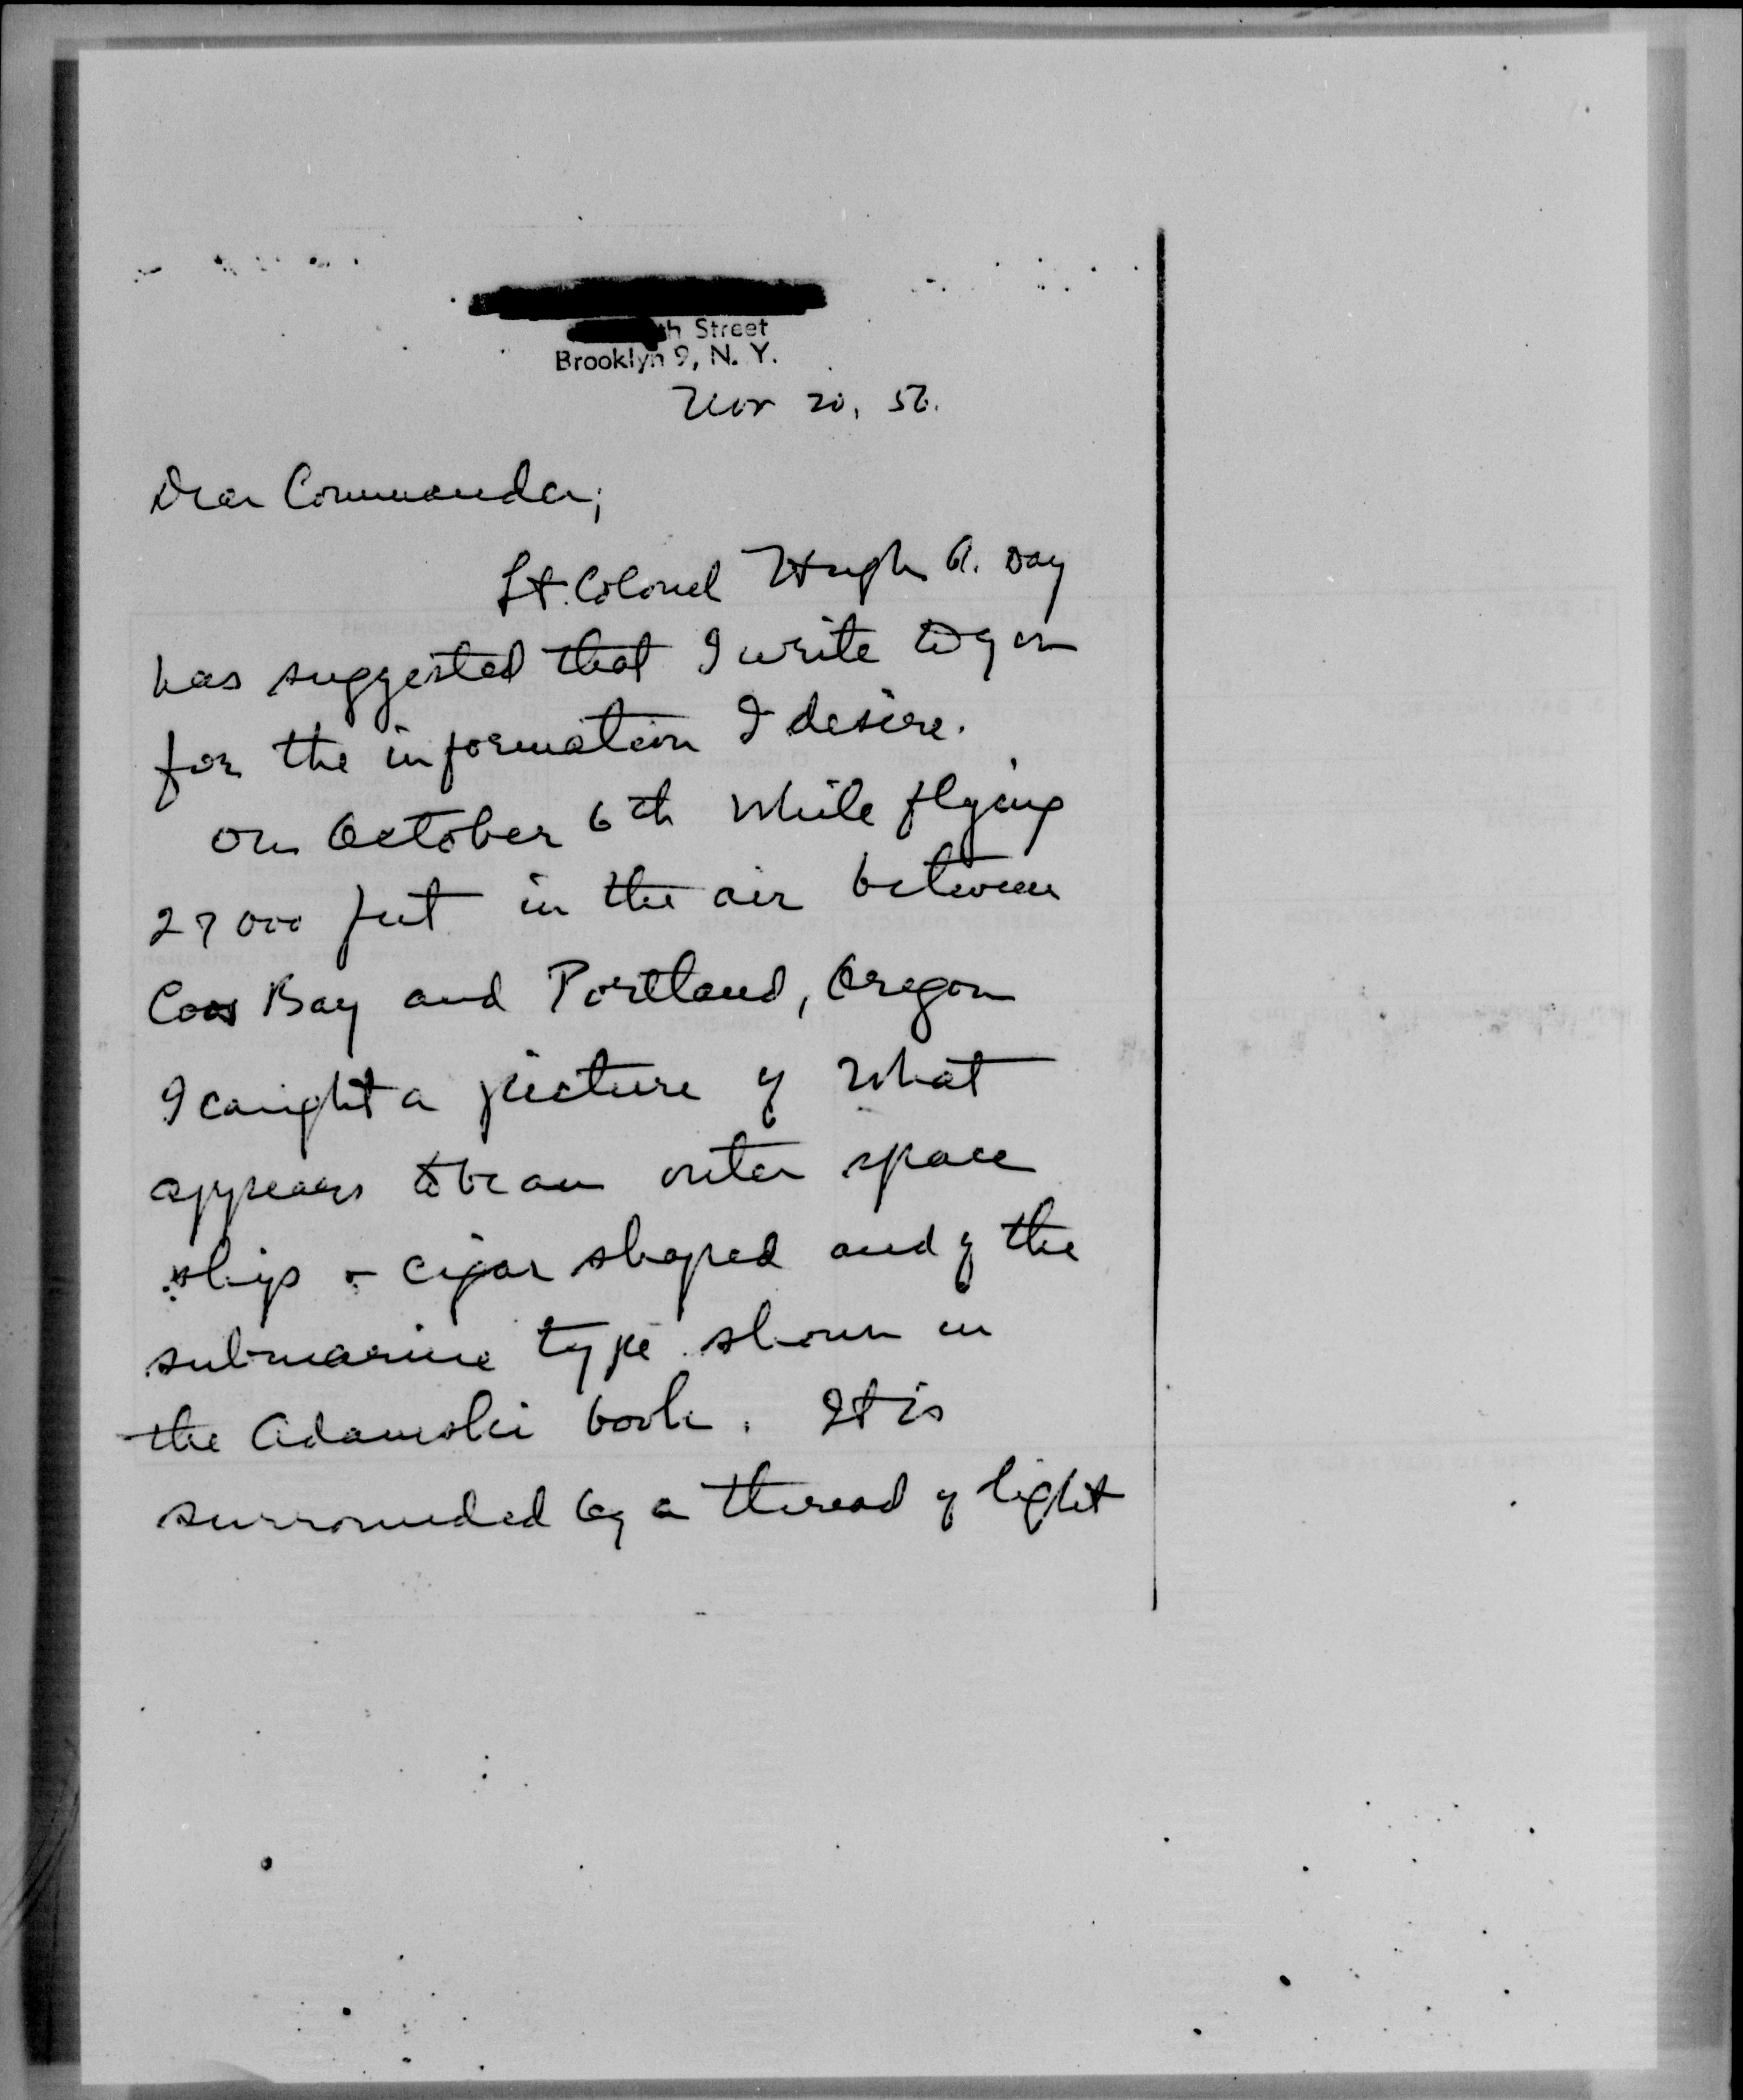 th Street
Brooklyn 9, N. Y.
Nov 20, 56.
Dear Commander;
Lt. Colonel Hugh A. Day
has suggested that I write to you
for the information I desire.
On October 6th while flying
27000 feet in the air between
Coos Bay and Portland, Oregon
I caught a picture of what
appears to be an outer space
ship - cigar shaped and of the
submarine type shown in
the Adamski book. It is
surrounded by a thread of light